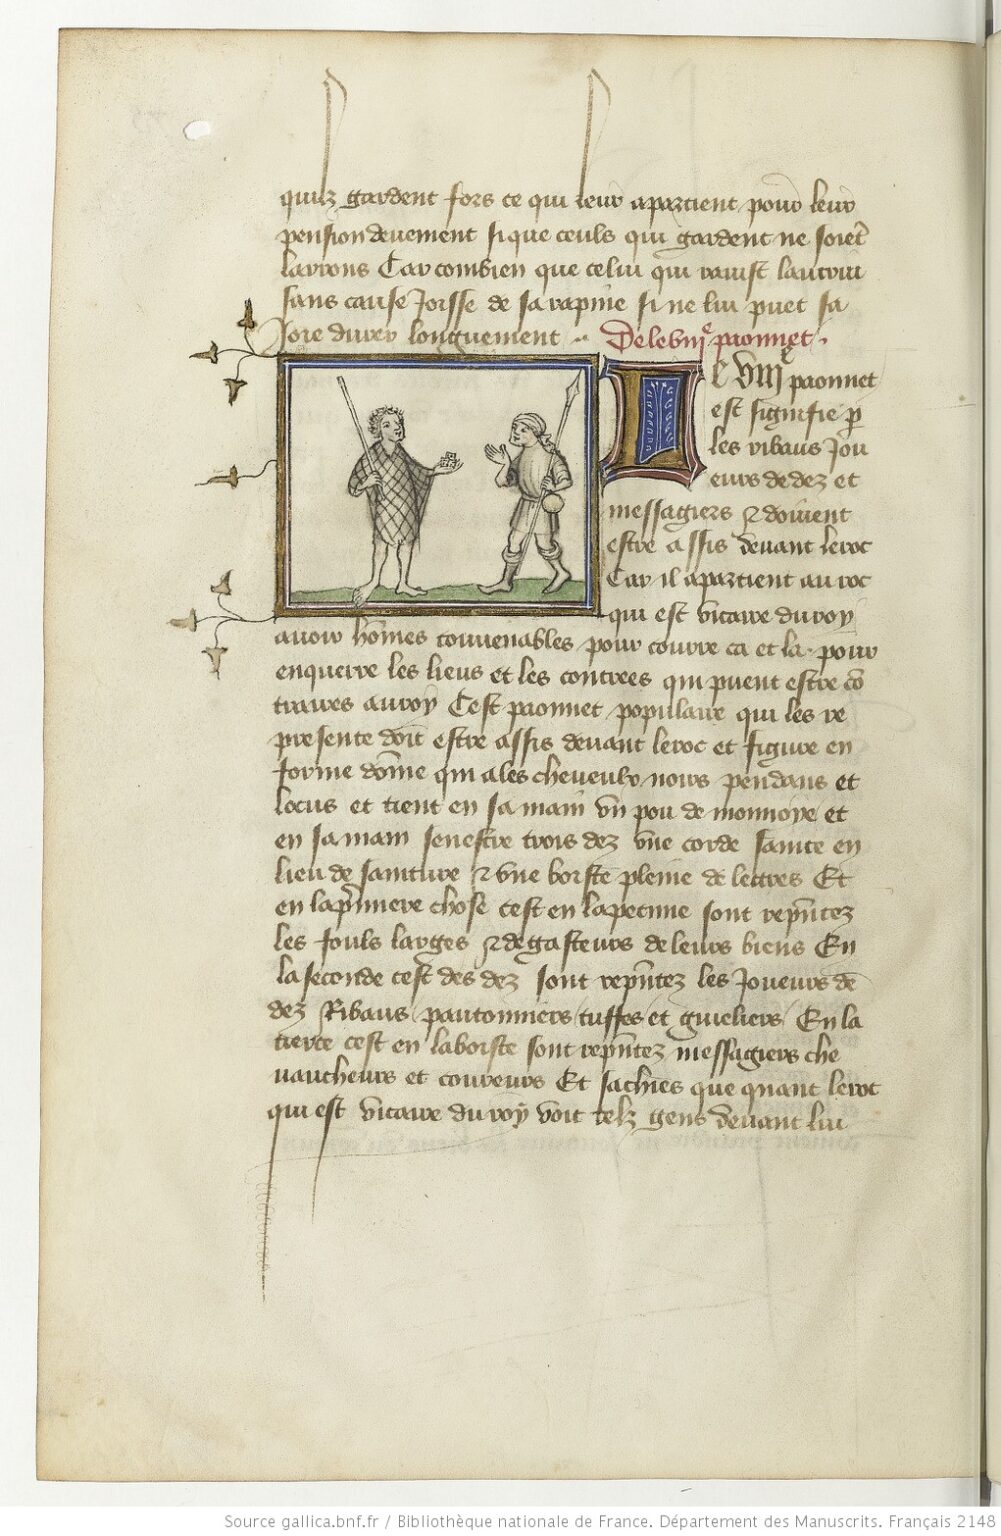 quilz gardent fors ce qui leur apartient pour leur
pension deuement si que ceuls qui gardent ne soiet
larrons Car combien que celui qui rauist lautrui
sans cause Joisse de sa rapine si ne lui puet sa
Joie durer longuement
De le viije paonnet
Le VIIJe paonnet
est signifie p
les ribaus Jou
eurs de dez et
messagiers & doiuent
estre assis deuant le roc
Car il apartient au roc
qui est vicaire du roy
auoir homes conuenables pour courre ca et la pour
enquerre les lieus et les contrees qui puent estre co
traires au roy Cest paonnet populaire qui les re
presente doit estre assis deuant le roc et figure en
forme dome qui a les cheueulx noirs pendans et
locus et tient en sa main vn pou de monnoye et
en sa main senestre trois dez vne corde sainte en
lieu de sainture & vne boiste pleine de lettres Et
en la pmiere chose cest en la pecune sont repntez
les fouls larges & degasteurs de leurs biens En
la seconde cest des dez sont repntez les Joueurs de
dez Ribaus pautonniers tuffes et guieliers En la
tierce cest en la boiste sont repntez messagiers che
uaucheurs et coureurs Et sachies que quant le roc
qui est vicaire du roy voit telz gens deuant lui
Source gallica.bnf.fr / Bibliothèque nationale de France. Département des Manuscrits. Français 2148